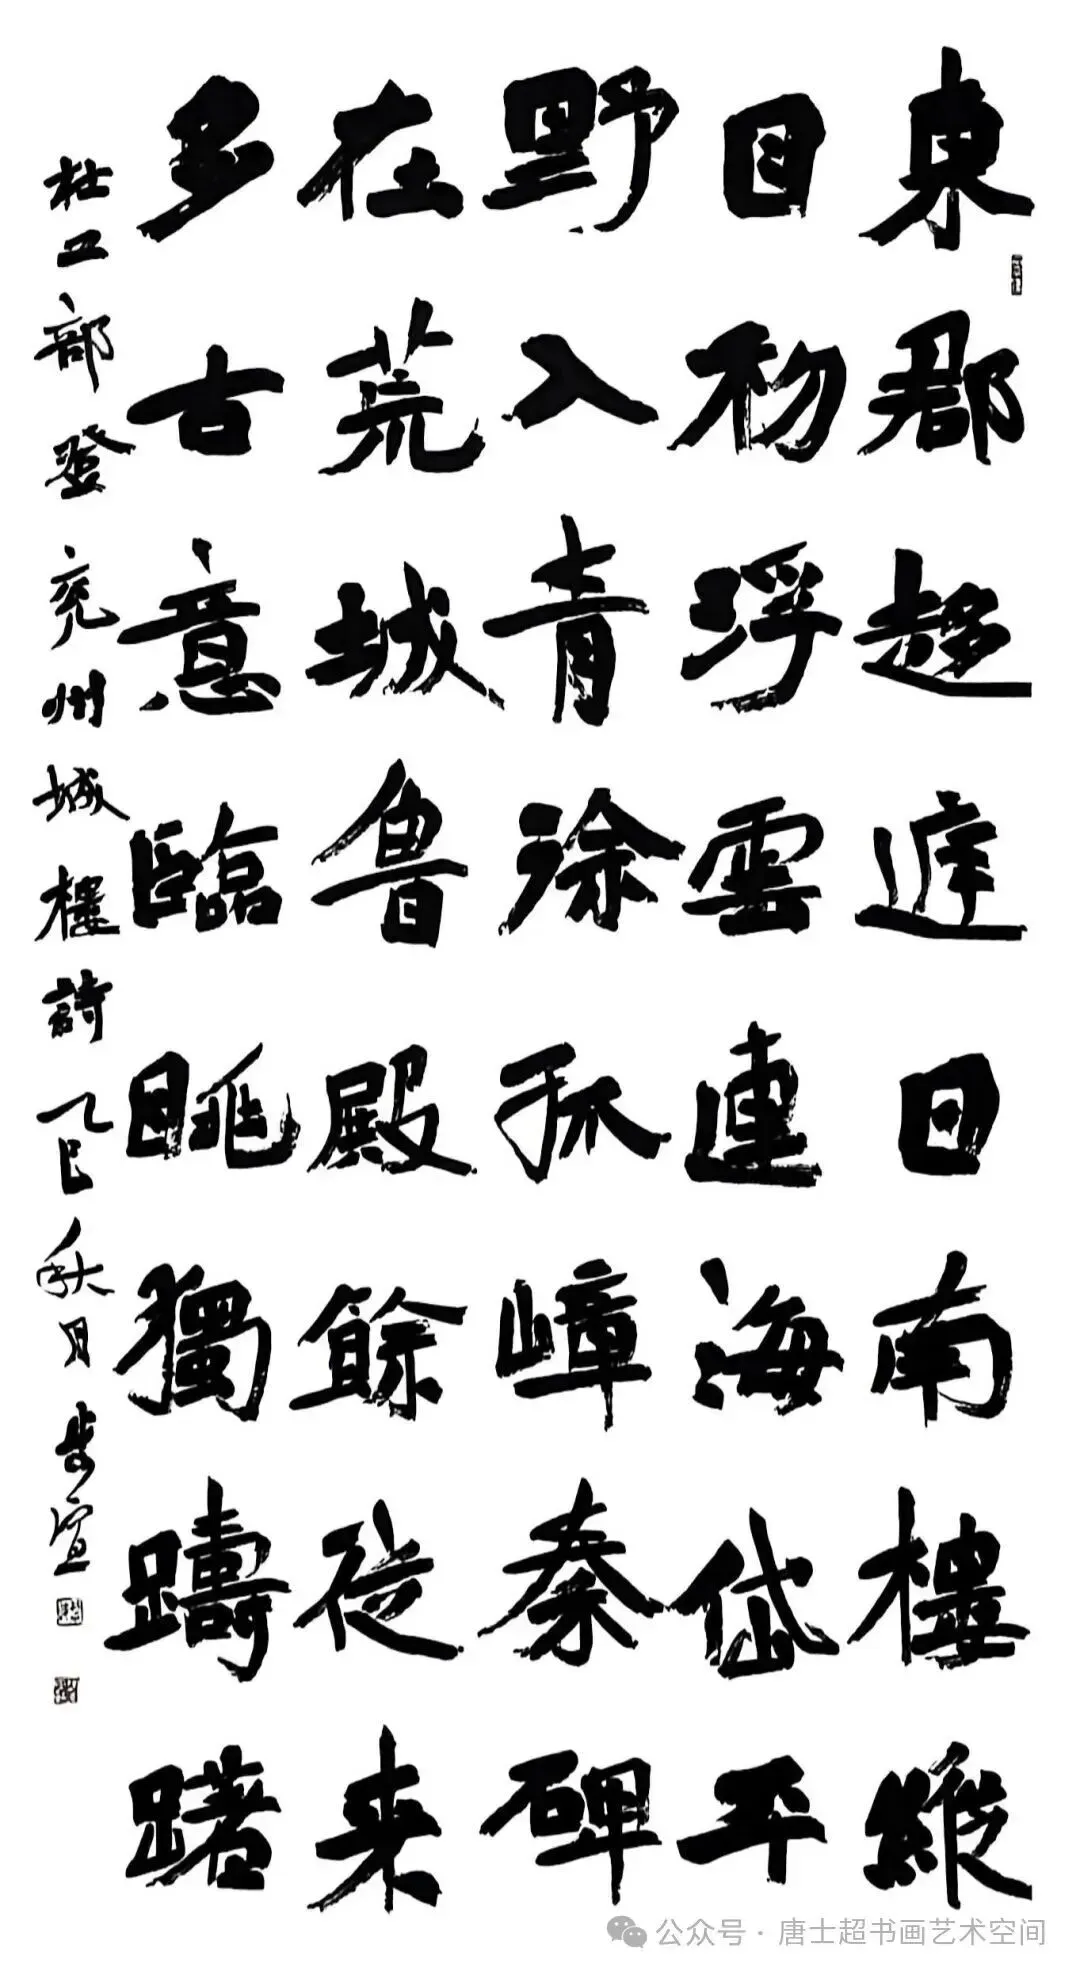 東郡趍庭日南樓縱
目初浮雲連海岱平
野入青徐孤嶂秦碑
在荒城魯殿餘從來
多古意臨眺獨躊躇
杜工部登兖州城樓詩乙巳秋月步宣
公众号·唐士超书画艺术空间